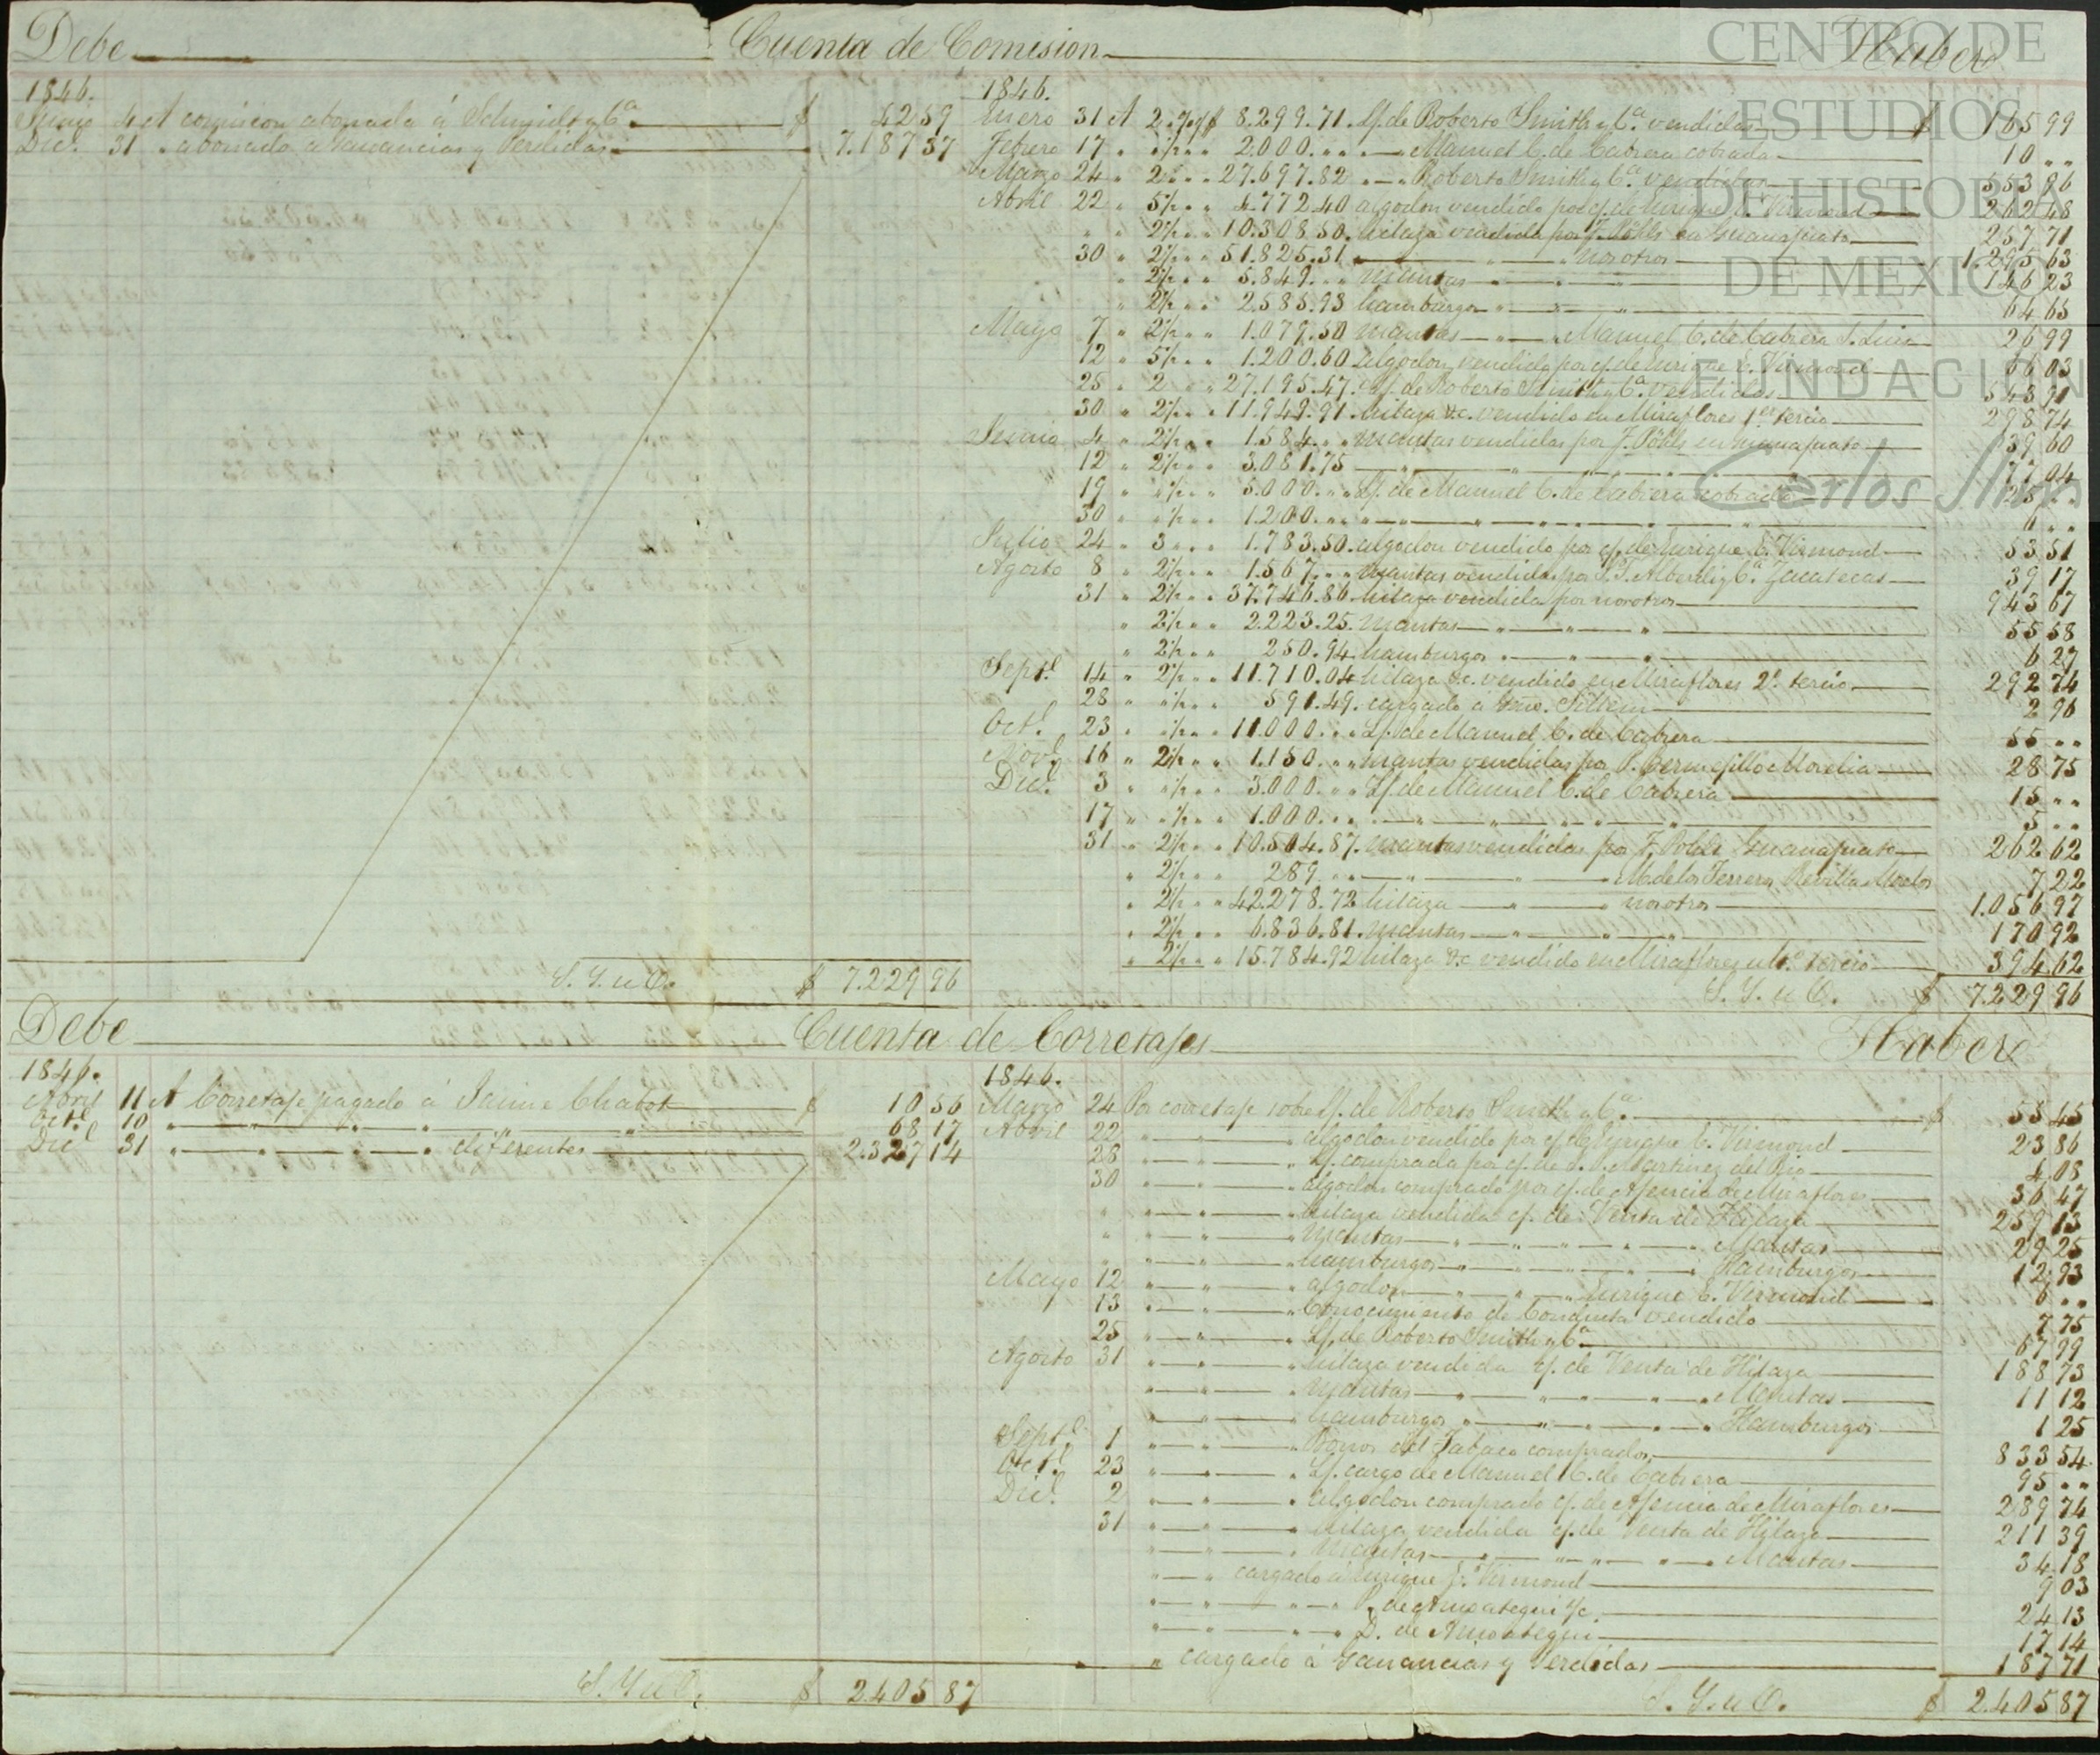 Debe Cuenta de Comision Haber
1846.
Junio 4 A comision abonada á Schmidt y Cª $ 42 59
Dic.e 31 " abonado a Ganancias y Perdidas " 7.187 37
S. Y. u O. $ 7.229 96
1846.
Enero 31 A 2 % s/ $ 8.299.71. Lf. de Roberto Smith y Cª vendidas $ 165 99
Febrero 17 " ½ " " 2.000. " " " Manuel C. de Cabrera cobrada 10 " "
Marzo 24 " 2 " " " 27.697.82 " " Roberto Smith y Cª vendidas 553 96
Abril 22 " 5½ " " 4.772.40 algodon vendido por cf. de Enrique C. Virmond 262 48
" " 2½ " " 10.308.50. hilaza vendida por J. Pöhls en Guanajuato 257 71
30 " 2½ " " 51.825.31 " " nosotros 1.295 63
" 2½ " " 5.849. " " mantas " " " 146 23
" 2½ " " 2.585.93 hamburgos " " " 64 65
Mayo 7 " 2½ " " 1.079.50 mantas " Manuel C. de Cabrera S. Luis 26 99
12 " 5½ " " 1.200.60 algodon vendido por cf. de Enrique C. Virmond 66 03
25 " 2 " " 27.195.47. Lf. de Roberto Smith y Cª vendidas 543 91
30 " 2½ " " 11.949.91. hilaza &c. vendido en Miraflores 1er tercio 298 74
Junio 4 " 2½ " " 1.584. " " mantas vendidas por J. Pöhls en Guanajuato 39 60
12 " 2½ " " 3.081.75 " " " " " 77 04
19 " ½ " " 5.000. " " Lf. de Manuel C. de Cabrera cobrada 25 " "
30 " ½ " " 1.200. " " " " " " " " 6 " "
Julio 24 " 3 " " " 1.783.50. algodon vendido por cf. de Enrique C. Virmond 53 51
Agosto 8 " 2½ " " 1.567. " " mantas vendidas por Cª Zacatecas 39 17
31 " 2½ " " 37.746.86 hilaza vendida por nosotros 943 67
" 2½ " " 2.223.25. mantas " " " 55 58
" 2½ " " 250.94 hamburgos " " " 6 27
Sept.e 14 " 2½ " " 11.710.04 hilaza &c. vendido en Miraflores 2º tercio 292 74
28 " ½ " " 591.49. cargado a 2 96
Oct.e 23 " ½ " " 11.000. " " Lf. de Manuel C. de Cabrera 55 " "
Nov.e 16 " 2½ " " 1.150. " " mantas vendidas por P. Bermejillo Morelia 28 75
Dic.e 3 " ½ " " 3.000. " " Lf. de Manuel C. de Cabrera 15 " "
17 " ½ " " 1.000. " " " " " " " 5 " "
31 " 2½ " " 10.504.87. mantas vendidas por J. Pöhls Guanajuato 262 62
" 2½ " " 289. " " " " M. de los 7 22
" 2½ " " 42.278.72 hilaza " " nosotros 1.056 97
" 2½ " " 6.836.81. mantas " " " 170 92
" 2½ " " 15.784.92 hilaza &c vendido en Miraflores tercio 394 62
S. Y. u O. $ 7.229 96
Debe Cuenta de Corretajes Haber
1846.
Abril 11 A Corretaje pagado á Jaime Chabot $ 10 56
Oct.e 10 " " " " " " 68 17
Dic.e 31 " " " " diferentes 2.327 14
S. Y u O. $ 2.405 87
1846.
Marzo 24 Por corretaje sobre Lf. de Roberto Smith y Cª $ 55 45
Abril 22 " " " algodon vendido por cf. de Enrique C. Virmond 23 86
28 " " " Lf. comprada por cf. de J. P. Martinez del Rio 4 08
30 " " " algodon comprado por cf. de Agencia de Miraflores 36 47
" " " " hilaza vendida cf. de Venta de Hilaza 259 13
" " " " mantas " " " " " Mantas 29 25
" " " " hamburgos " " " " " Hamburgos 12 93
Mayo 12 " " " algodon " " " Enrique C. Virmond 6 " "
13 " " " Conocimiento de Conducta vendido 7 75
25 " " " Lf. de Roberto Smith y Cª 67 99
Agosto 31 " " " hilaza vendida cf. de Venta de Hilaza 188 73
" " " mantas " " " " " Mantas 11 12
" " " hamburgos " " " " " Hamburgos 1 25
Sept.e 1 " " " Bonos del Tabaco comprados 833 54
Oct.e 23 " " " Lf. cargo de Manuel C. de Cabrera 95 " "
Dic.e 2 " " " algodon comprado cf. de Agencia de Miraflores 289 74
31 " " " hilaza vendida cf. de Venta de Hilaza 211 39
" " " mantas " " " " " Mantas 34 18
" " cargado a Enrique C. Virmond 9 03
" " " " P. de Ansoategui 24 13
" " " " D. de Ansoategui 17 14
" cargado á Ganancias y Perdidas 187 71
S. Y. u O. $ 2.405 87
CENTRO DE
ESTUDIOS
DE HISTORIA
DE MEXICO
FUNDACION
Carlos Slim